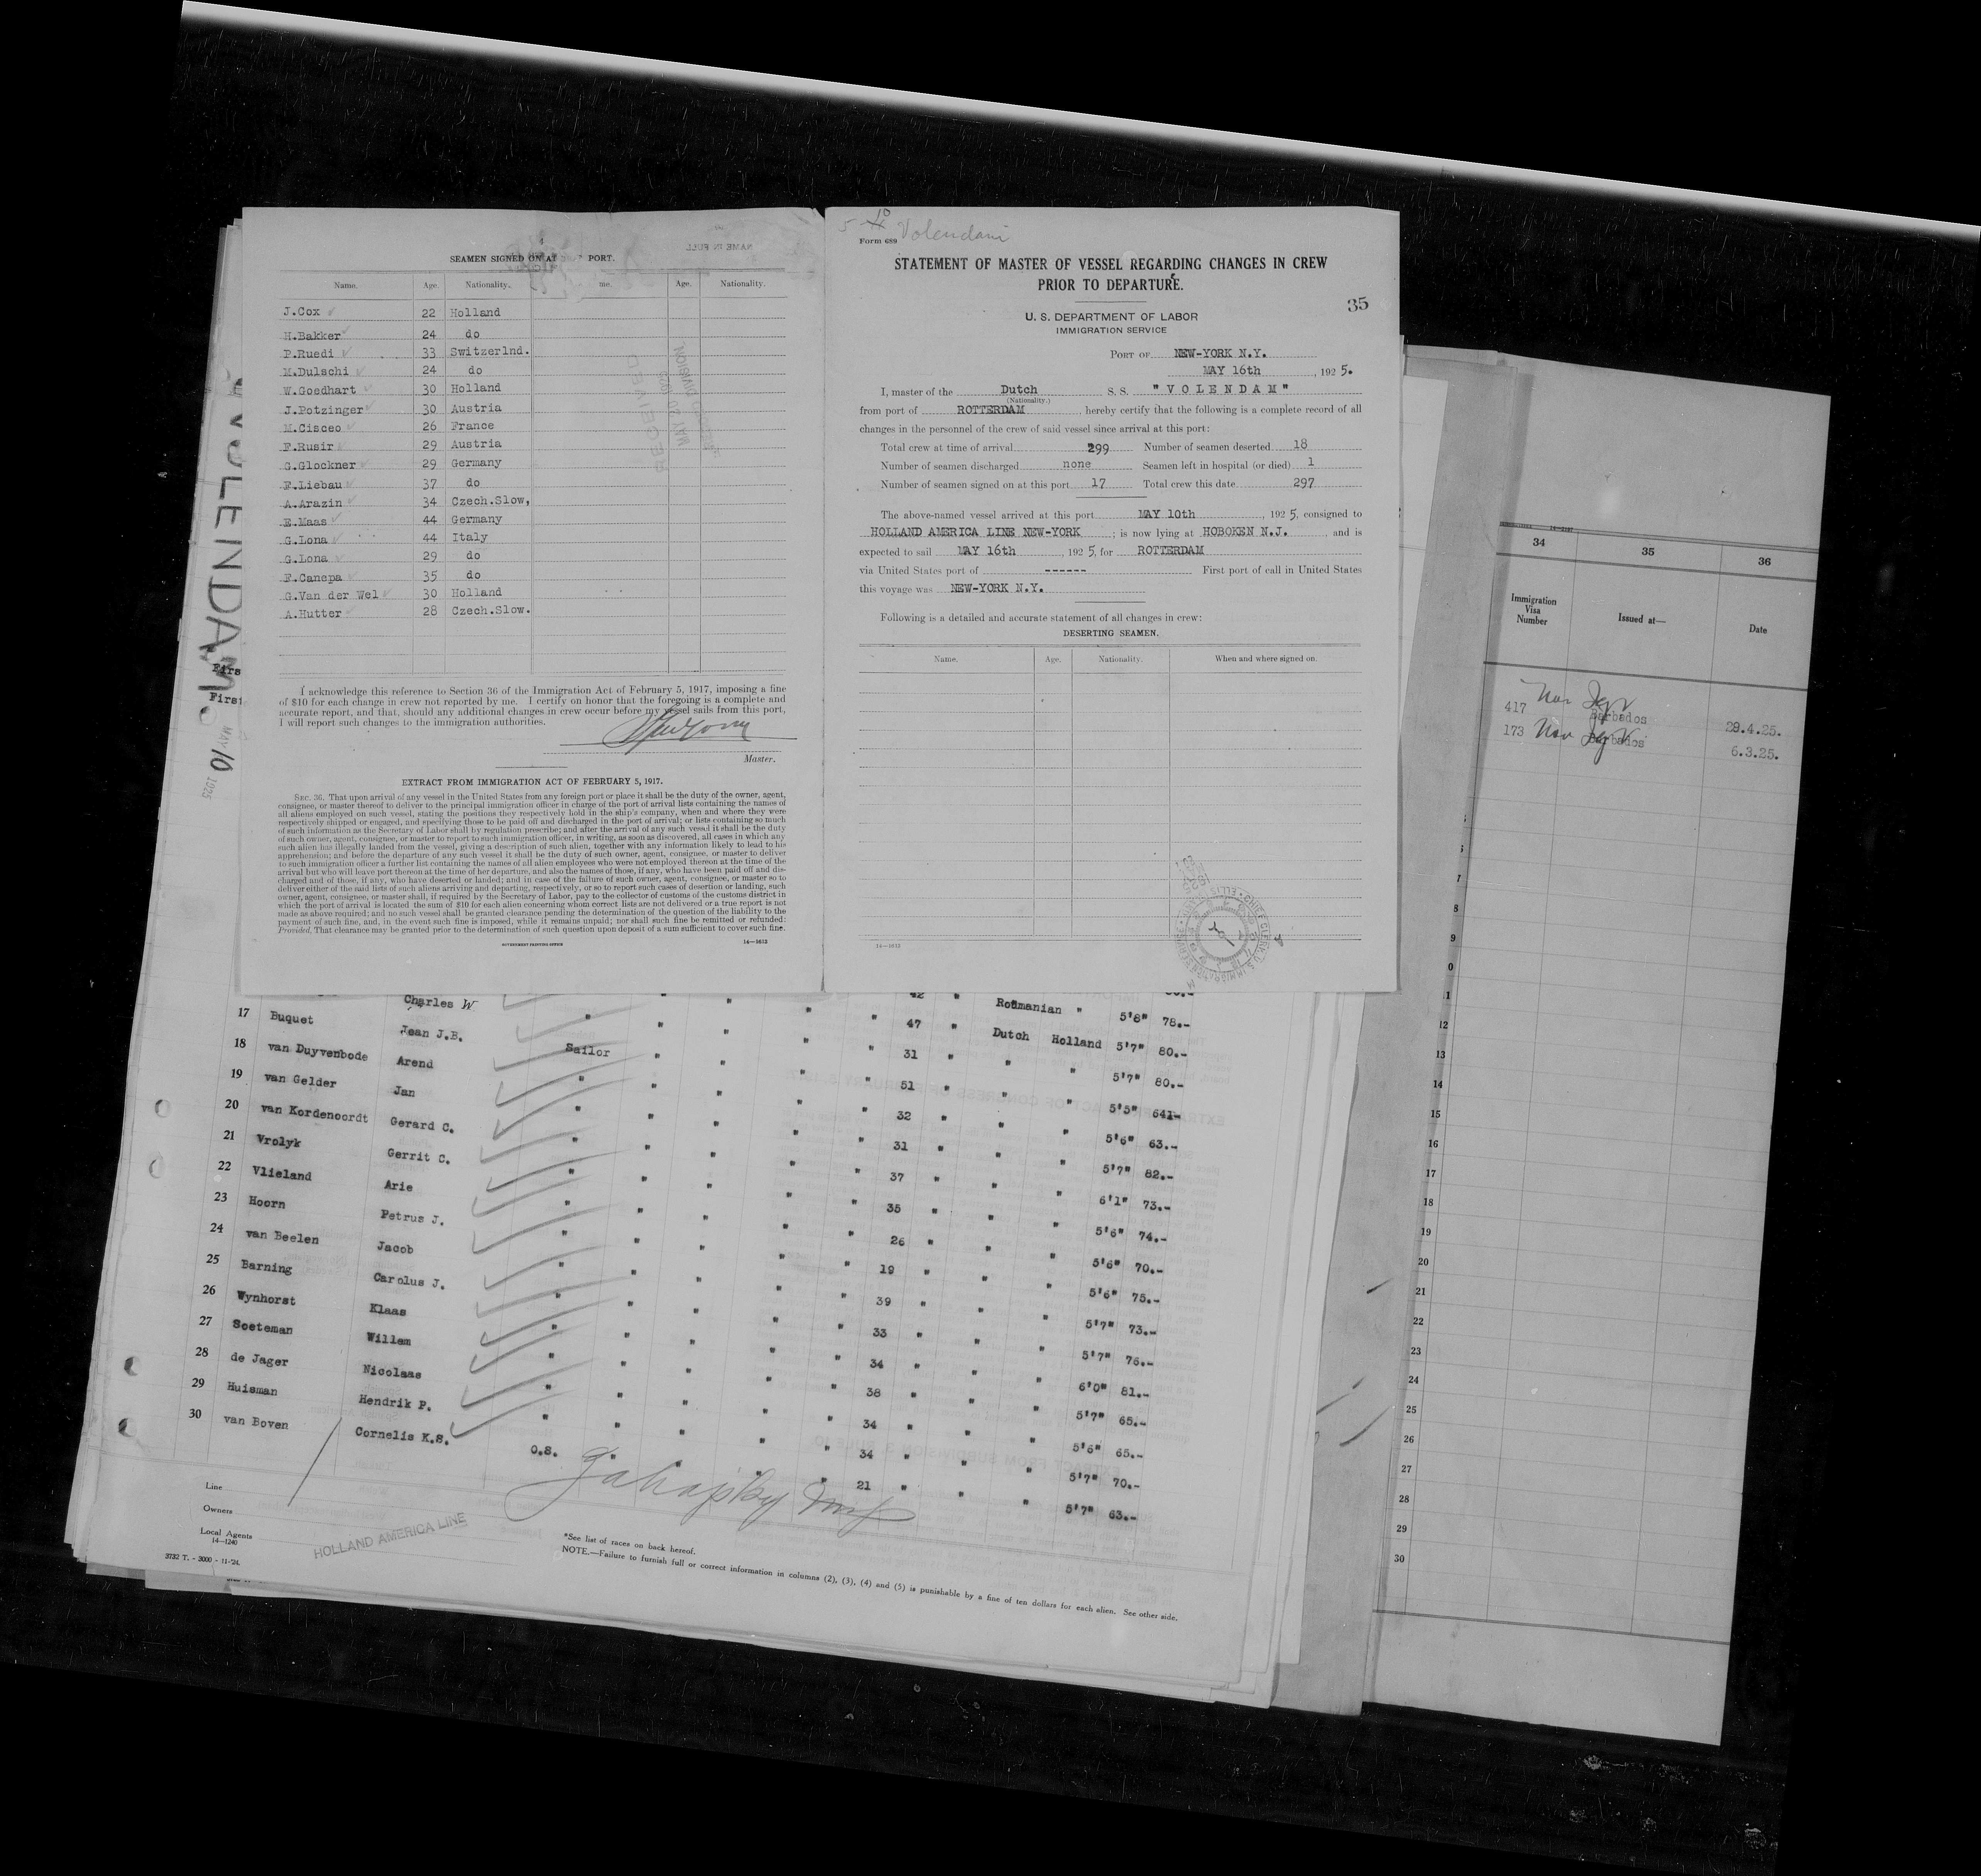 SEAMEN SIGNED ON AT PORT.
NAME IN FULL
Name. Age. Nationality. me. Age. Nationality.
J.Cox 22 Holland
H.Bakker 24 do
P.Ruedi 33 Switzerlnd.
M.Dulschi 24 do
W.Goedhart 30 Holland
J.Potzinger 30 Austria
M.Cisceo 26 France
F.Rusir 29 Austria
G.Glockner 29 Germany
F.Liebau 37 do
A.Arazin 34 Czech.Slow,
E.Maas 44 Germany
G.Lona 44 Italy
G.Lona 29 do
F.Canepa 35 do
G.Van der Wel 30 Holland
A.Hutter 28 Czech.Slow.
RECEIVED
MAY 20 1925
RECORD DIVISION
I acknowledge this reference to Section 36 of the Immigration Act of February 5, 1917, imposing a fine
of $10 for each change in crew not reported by me. I certify on honor that the foregoing is a complete and
accurate report, and that, should any additional changes in crew occur before my vessel sails from this port,
I will report such changes to the immigration authorities.
Master.
EXTRACT FROM IMMIGRATION ACT OF FEBRUARY 5, 1917.
SEC. 36. That upon arrival of any vessel in the United States from any foreign port or place it shall be the duty of the owner, agent,
consignee, or master thereof to deliver to the principal immigration officer in charge of the port of arrival lists containing the names of
all aliens employed on such vessel, stating the positions they respectively hold in the ship's company, when and where they were
respectively shipped or engaged, and specifying those to be paid off and discharged in the port of arrival; or lists containing so much
of such information as the Secretary of Labor shall by regulation prescribe; and after the arrival of any such vessel it shall be the duty
of such owner, agent, consignee, or master to report to such immigration officer, in writing, as soon as discovered, all cases in which any
such alien has illegally landed from the vessel, giving a description of such alien, together with any information likely to lead to his
apprehension; and before the departure of any such vessel it shall be the duty of such owner, agent, consignee, or master to deliver
to such immigration officer a further list containing the names of all alien employees who were not employed thereon at the time of the
arrival but who will leave port thereon at the time of her departure, and also the names of those, if any, who have been paid off and dis-
charged and of those, if any, who have deserted or landed; and in case of the failure of such owner, agent, consignee, or master so to
deliver either of the said lists of such aliens arriving and departing, respectively, or so to report such cases of desertion or landing, such
owner, agent, consignee, or master, shall, if required by the Secretary of Labor, pay to the collector of customs of the customs district in
which the port of arrival is located the sum of $10 for each alien concerning whom correct lists are not delivered or a true report is not
made as above required; and no such vessel shall be granted clearance pending the determination of the question of the liability to the
payment of such fine, and, in the event such fine is imposed, while it remains unpaid; nor shall such fine be remitted or refunded:
Provided, That clearance may be granted prior to the determination of such question upon deposit of a sum sufficient to cover such fine.
GOVERNMENT PRINTING OFFICE 14—1613
Volendam
Form 689
STATEMENT OF MASTER OF VESSEL REGARDING CHANGES IN CREW
PRIOR TO DEPARTURE.
35
U. S. DEPARTMENT OF LABOR
IMMIGRATION SERVICE
PORT OF NEW-YORK N.Y.
MAY 16th, 1925.
I, master of the Dutch S. S. "VOLENDAM"
(Nationality.)
from port of ROTTERDAM, hereby certify that the following is a complete record of all
changes in the personnel of the crew of said vessel since arrival at this port:
Total crew at time of arrival 299 Number of seamen deserted 18
Number of seamen discharged none Seamen left in hospital (or died) 1
Number of seamen signed on at this port 17 Total crew this date 297
The above-named vessel arrived at this port MAY 10th, 1925, consigned to
HOLLAND AMERICA LINE NEW-YORK; is now lying at HOBOKEN N.J. and is
expected to sail MAY 16th, 1925, for ROTTERDAM
via United States port of ------ First port of call in United States
this voyage was NEW-YORK N.Y.
Following is a detailed and accurate statement of all changes in crew:
DESERTING SEAMEN.
Name. Age. Nationality. When and where signed on.
14—1613
VOLENDAM
Firs
First
MAY 10 1925
34 35 36
Immigration Visa Number Issued at— Date
417 Barbados 29.4.25.
173 Barbados 6.3.25.
Charles W " " " " 42 " Roumanian " 5'8" 78.-
17 Buquet Jean J.B. Sailor " " " 47 " Dutch Holland 5'7" 80.-
18 van Duyvenbode Arend " " " " 31 " " " 5'7" 80.-
19 van Gelder Jan " " " " 51 " " " 5'5" 641-
20 van Kordenoordt Gerard C. " " " " 32 " " " 5'6" 63.-
21 Vrolyk Gerrit C. " " " " 31 " " " 5'7" 82.-
22 Vlieland Arie " " " " 37 " " " 6'1" 73.-
23 Hoorn Petrus J. " " " " 35 " " " 5'6" 74.-
24 van Beelen Jacob " " " " 26 " " " 5'6" 70.-
25 Barning Carolus J. " " " " 19 " " " 5'6" 75.-
26 Wynhorst Klaas " " " " 39 " " " 5'7" 73.-
27 Soeteman Willem " " " " 33 " " " 5'7" 76.-
28 de Jager Nicolaas " " " " 34 " " " 6'0" 81.-
29 Huisman Hendrik P. " " " " 38 " " " 5'7" 65.-
30 van Boven Cornelis K.S. O.S. " " " 34 " " " 5'6" 65.-
34 " " " 5'7" 70.-
21 " " " 5'7" 63.-
Line
Owners
Local Agents
14—1240
HOLLAND AMERICA LINE
3732 T. - 3000 - 11-'24.
*See list of races on back hereof.
NOTE.—Failure to furnish full or correct information in columns (2), (3), (4) and (5) is punishable by a fine of ten dollars for each alien. See other side.
8
9
0
11
12
13
14
15
16
17
18
19
20
21
22
23
24
25
26
27
28
29
30